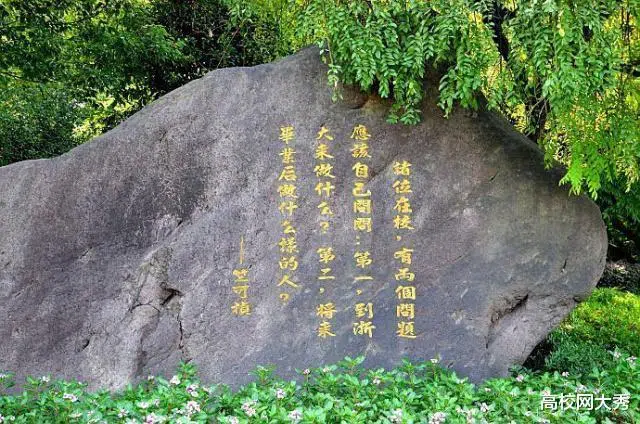 诸位在校，有兩個問題
應該自己問問：第一，到浙
大来做什么？第二，将来
畢業后做什么樣的人？
——竺可楨
高校网大秀